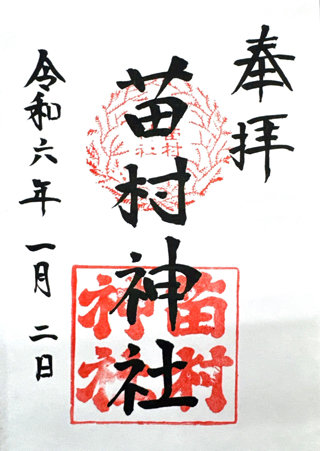 奉拝
苗村神社
苗村
神社
苗村
神社
令和六年一月二日